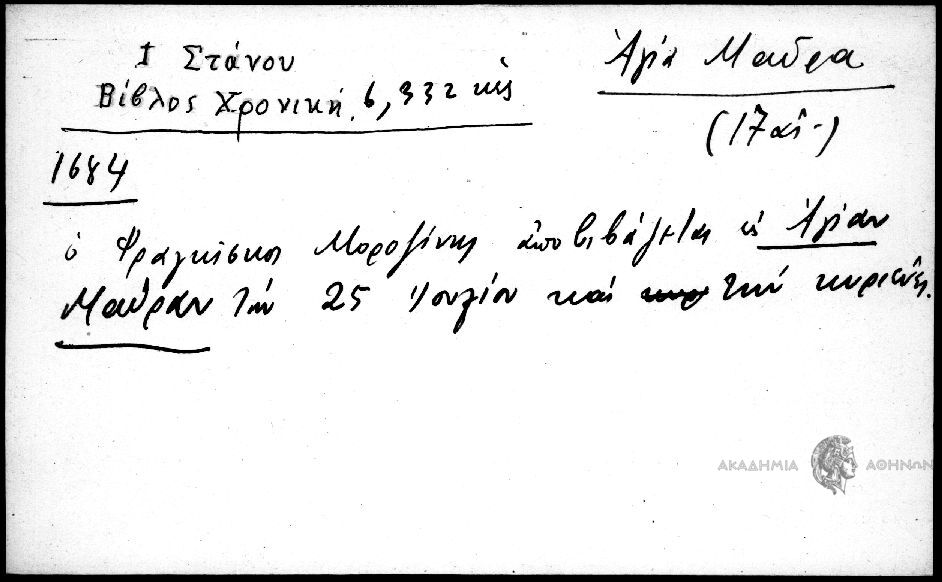 Ι Στάνου
Βίβλος Χρονική. 6, 332 κἑ
Ἁγία Μαῦρα
(17 αἰ.)
1684
ὁ Φραγκίσκος Μοροζίνης ἀποβιβάζεται εἰς Ἁγίαν
Μαύραν τὴν 25 Ἰουλίου καί τήν κυριεύει.
ΑΚΑΔΗΜΙΑ ΑΘΗΝΩΝ